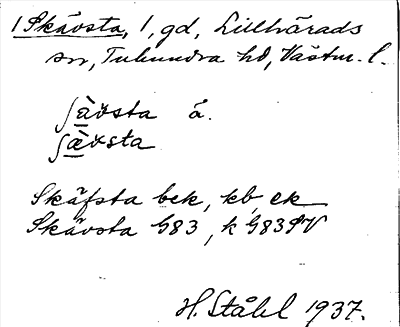 1 Skävsta, 1, gd, Lillhärads
sn, Tuhundra hd, Västm. l.
ʃàvsta å.
ʃæ̀vsta
Skäfsta bek, kb, ek
Skävsta G83, k G83SV
H. Ståhl 1937.